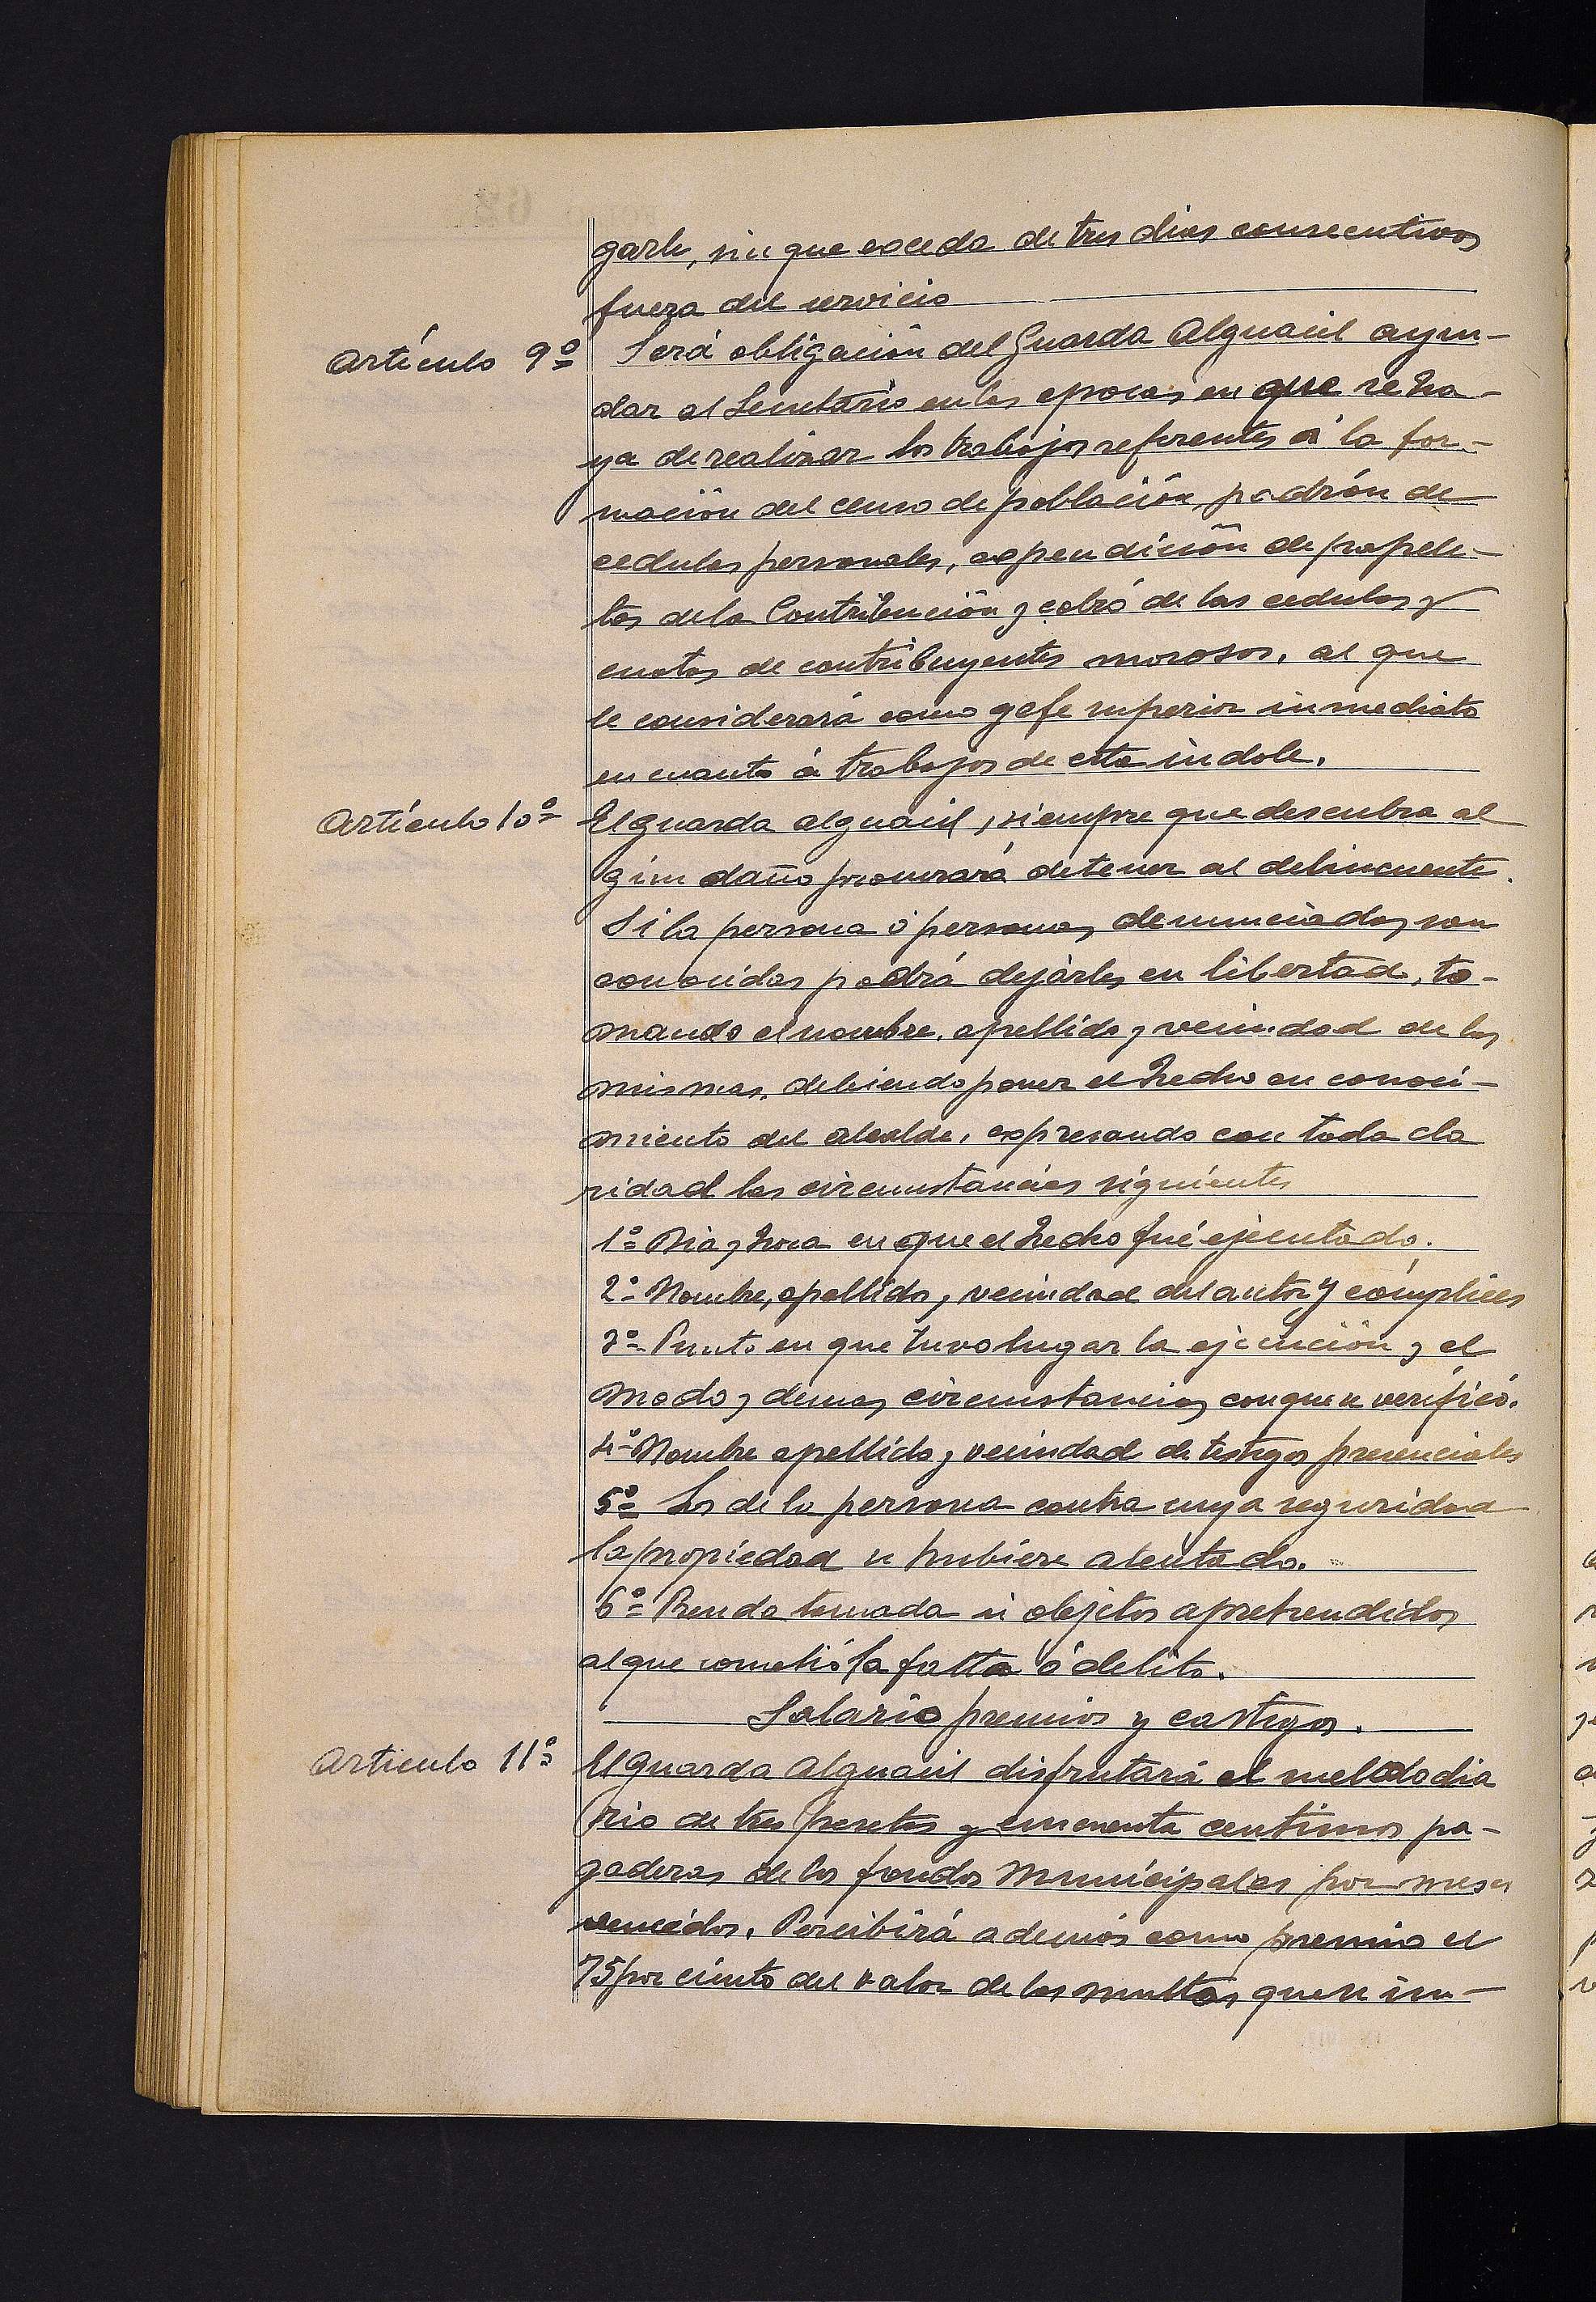 garle, sin que exceda de tres dias consecutivos
fuera del servicio
Artículo 9º Será obligación del Guarda Alguacil ayu-
dar al Secretario en las epocas en que se ha-
ya de realizar los trabajos referentes á la for-
mación del censo de población, padrón de
cedulas personales, expendición de papele-
tas de la Contribución y cobro de las cedulas y
cuotas de contribuyentes morosos, al que
le considerará como gefe superior inmediato
en cuanto á trabajos de esta indole.
Artículo 10º El guarda alguacil, siempre que descubra al
gún daño procurará detener al delincuente.
Si la persona ó personas denunciadas son
conocidas podrá dejarles en libertad, to-
mando el nombre, apellido y vecindad de las
mismas, debiendo poner el hecho en conoci-
miento del alcalde, expresando con toda cla
ridad las circunstancias siguientes
1º Dia y hora en que el hecho fué ejecutado.
2º Nombre, apellido, vecindad del autor y cómplices
3º Punto en que tuvo lugar la ejecución y el
modo y demas circunstancias con que se verificó.
4º Nombre apellido y vecindad de testigos presenciales
5º Los de la persona contra cuya seguridad
la propiedad se hubiere atentado.
6º Prenda tomada ú objetos aprehendidos
al que cometió la falta ó delito.
Salario premios y castigos.
Articulo 11º El guarda Alguacil disfrutará el sueldo dia
rio de tres pesetas y cincuenta centimos pa-
gaderas de los fondos Municipales por meses
vencidos. Percibirá ademós como premio el
75 por ciento del valor de las multas que se im-